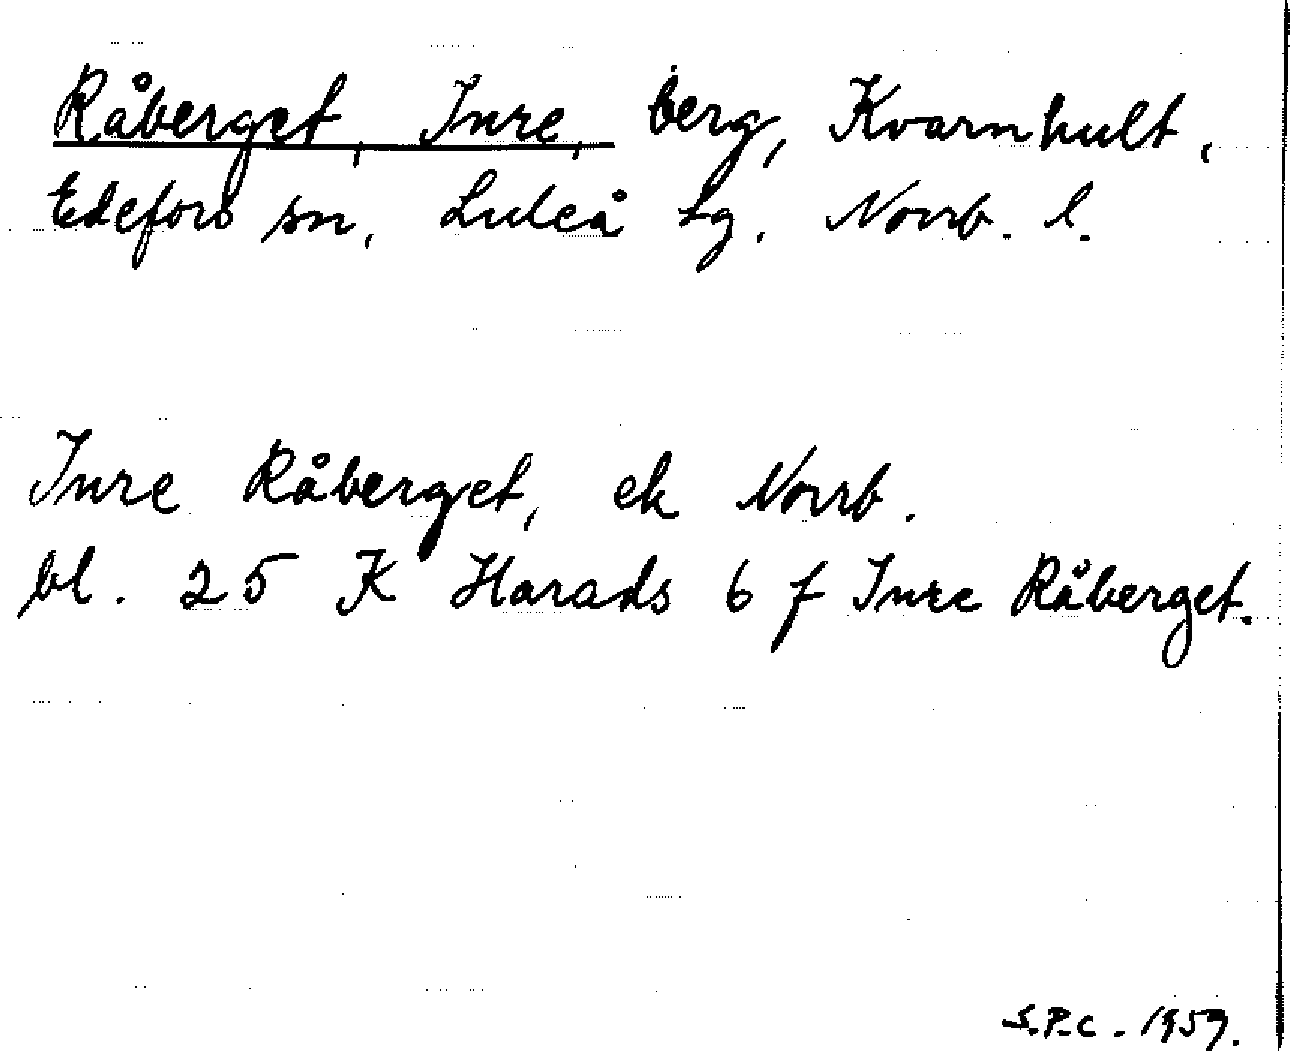 Råberget, Inre, berg, Kvarnhult,
Edefors sn, Luleå tg, Norrb. l.
Inre Råberget, ek Norrb.
bl. 25 K Harads 6 f Inre Råberget.
S.P.C. 1959.